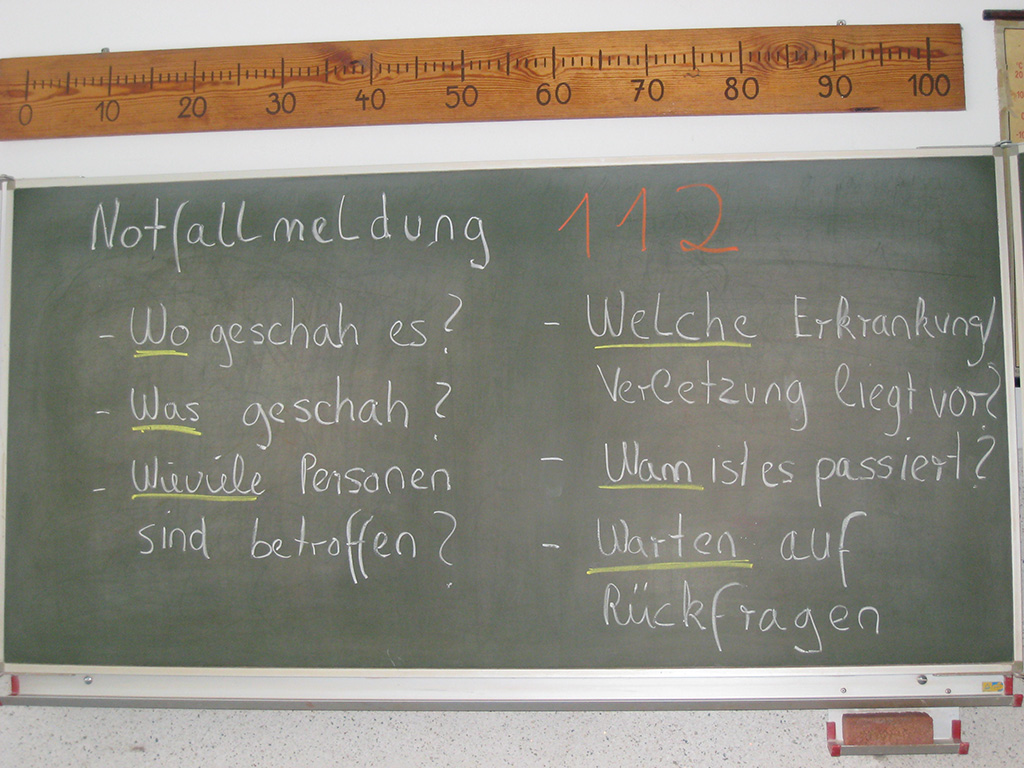 0 10 20 30 40 50 60 70 80 90 100
Notfallmeldung 112
- Wo geschah es?
- Was geschah?
- Wieviele Personen
sind betroffen?
- Welche Erkrankung/
Verletzung liegt vor?
- Wann ist es passiert?
- Warten auf
Rückfragen